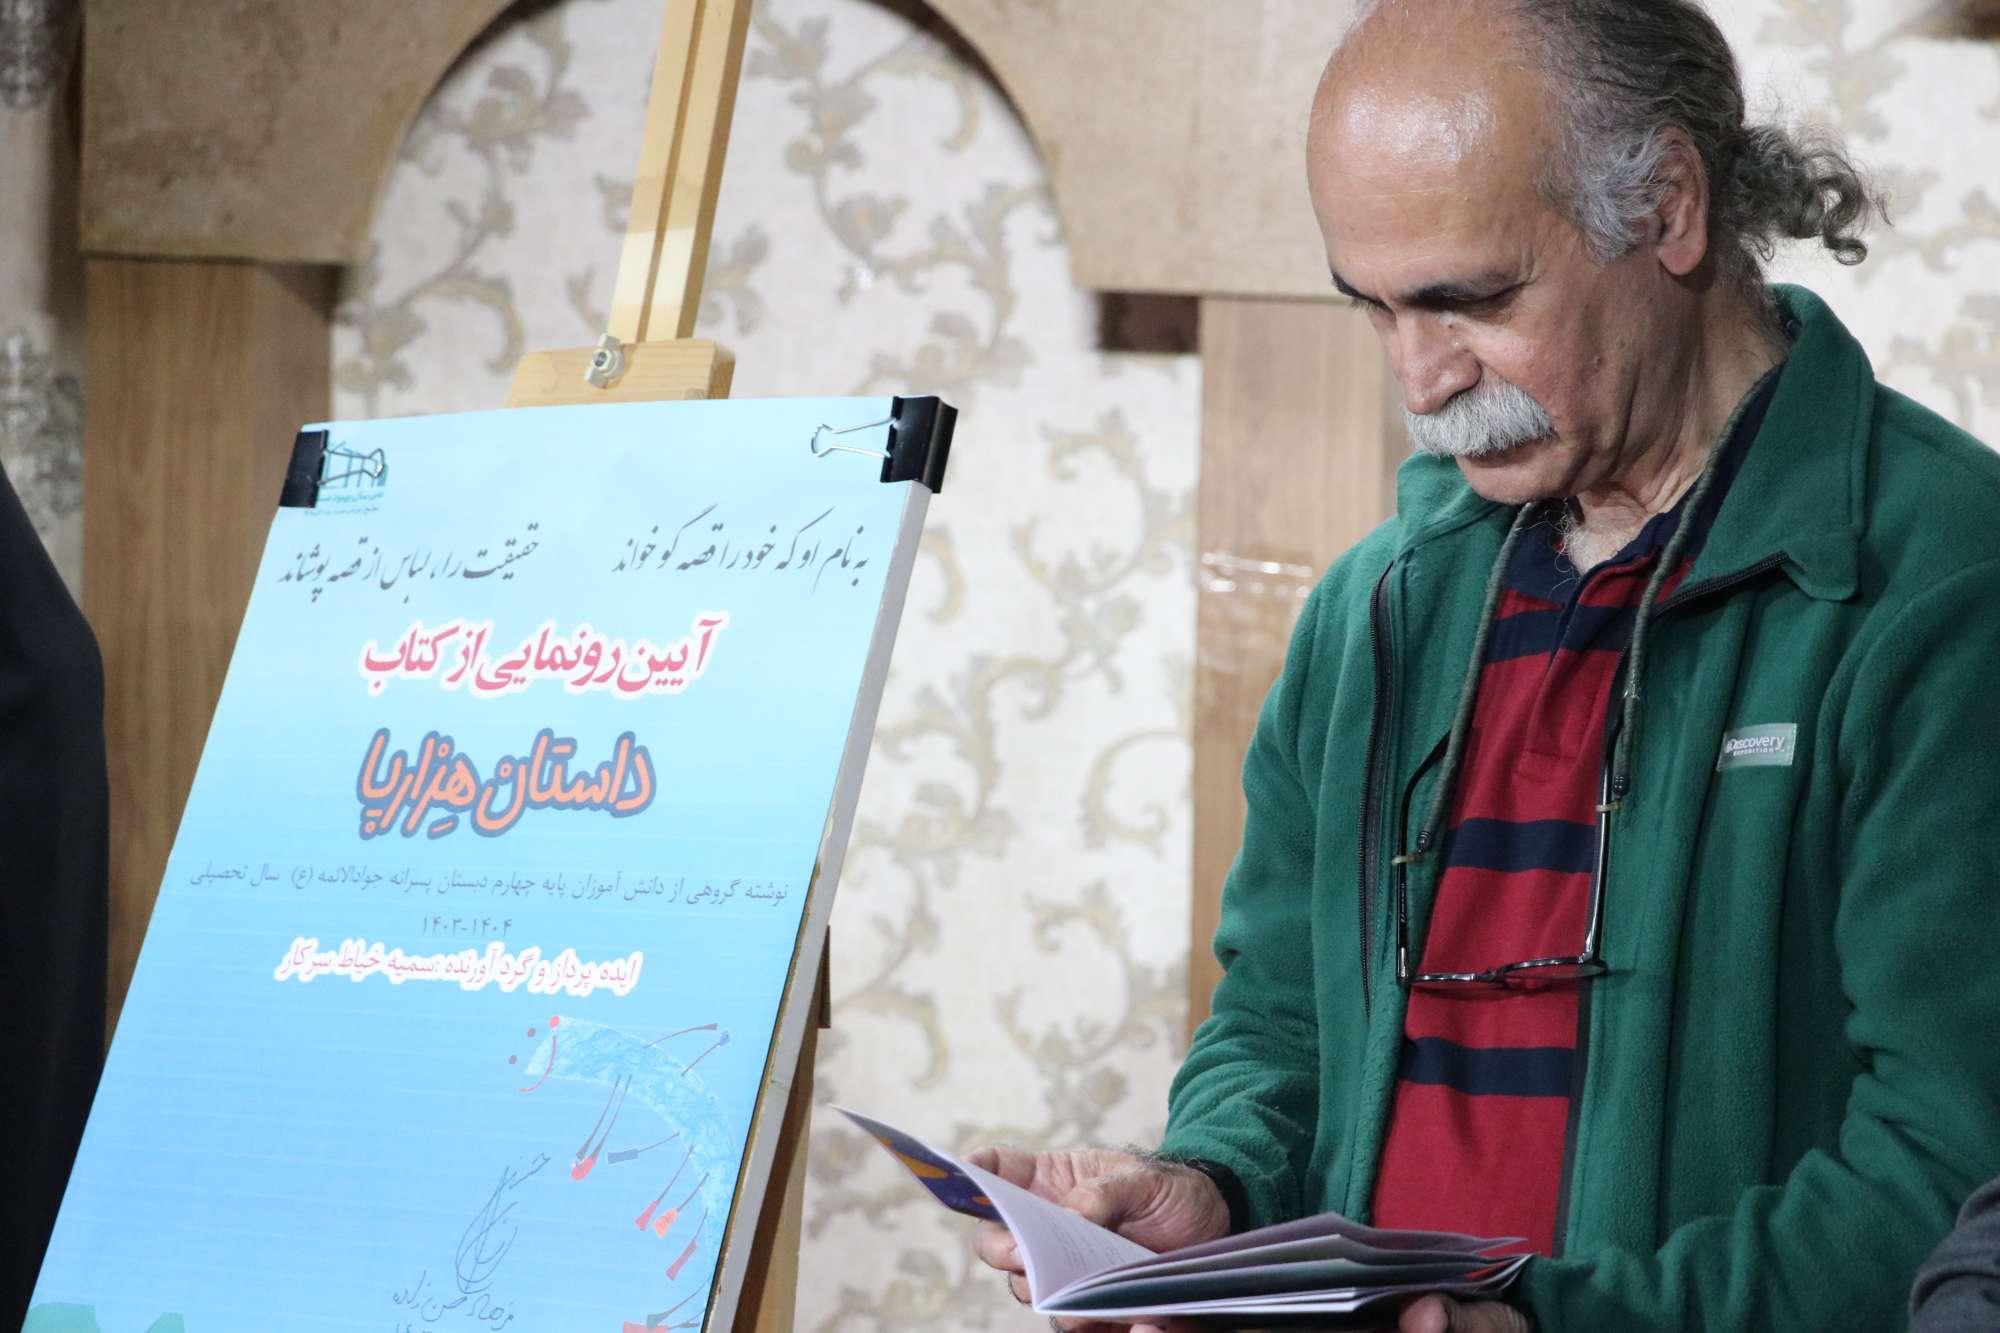 به نام او که خود را قصه گو خواند
حقیقت را، لباس از قصه پوشاند
آیین رونمایی از کتاب
داستان هِزارپا
نوشته گروهی از دانش آموزان پایه چهارم دبستان پسرانه جوادالائمه (ع) سال تحصیلی
۱۴۰۳-۱۴۰۴
ایده پرداز و گردآورنده :سمیه خیاط سرکار
فرهاد حسن زاده
DISCOVERY
EXPEDITION